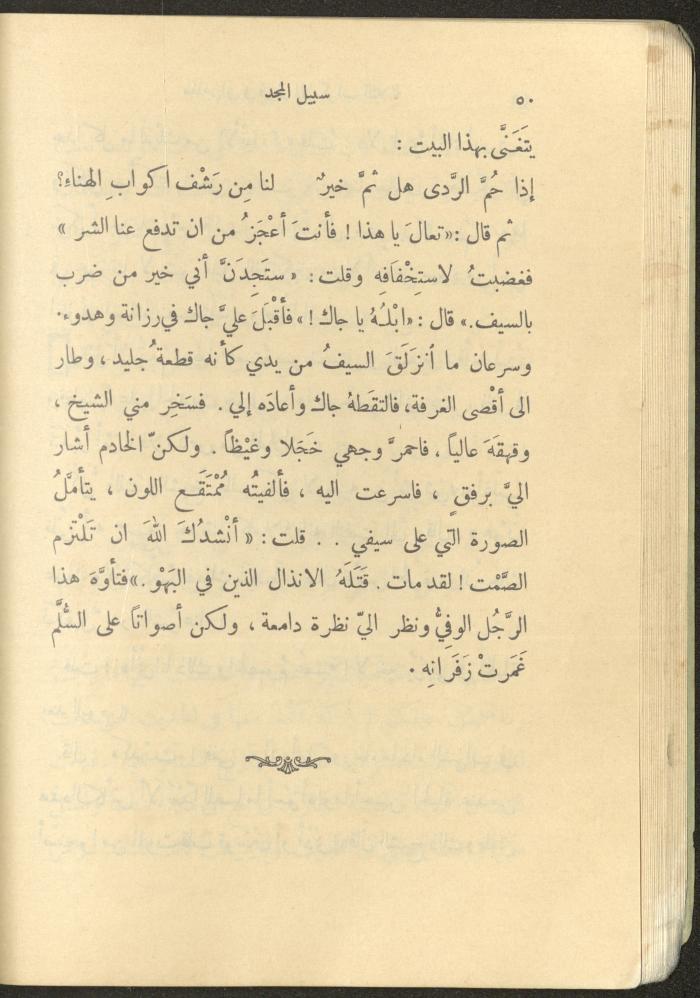 ٥٠ سبيل المجد
يتَغَنَّى بهذا البيت :
إذا حُمَّ الرَّدى هل ثمَّ خيرٌ لنا مِن رَشْف اكوابِ الهناءِ؟
ثم قال : «تعالَ يا هذا ! فأنتَ أعْجَزُ من ان تدفع عنا الشر »
فغضبتُ لاستِخْفافِهِ وقلت : « ستَجِدَنَّ أني خير من ضرب
بالسيف.» قال : «ابْلُهُ يا جاك ! » فأقْبَلَ عليَّ جاك في رزانة وهدوء.
وسرعان ما أنزَلَقَ السيفُ من يدي كأنه قطعةُ جليد ، وطار
الى أقْصى الغرفة، فالتقَطهُ جاك وأعادَه إلي . فسَخِر مني الشيخ ،
وقهقهَ عالياً ، فاحمرَّ وجهي خَجَلا وغيْظاً . ولكنّ الخادم أشار
اليَّ برفقٍ ، فاسرعت اليه ، فألفيتُه مُمْتَقَع اللون ، يتأمَّلُ
الصورة التي على سيفي . . قلت : « أنْشدُكَ اللهَ ان تَلْتزم
الصَّمْت ! لقد مات . قَتَلَهُ الانذال الذين في البَهْو .» فتأوَّهَ هذا
الرَّجُل الوفيُّ ونظر اليّ نظرة دامعة ، ولكن أصواتاً على السُّلَّم
غَمَرتْ زَفَرَاتِه .